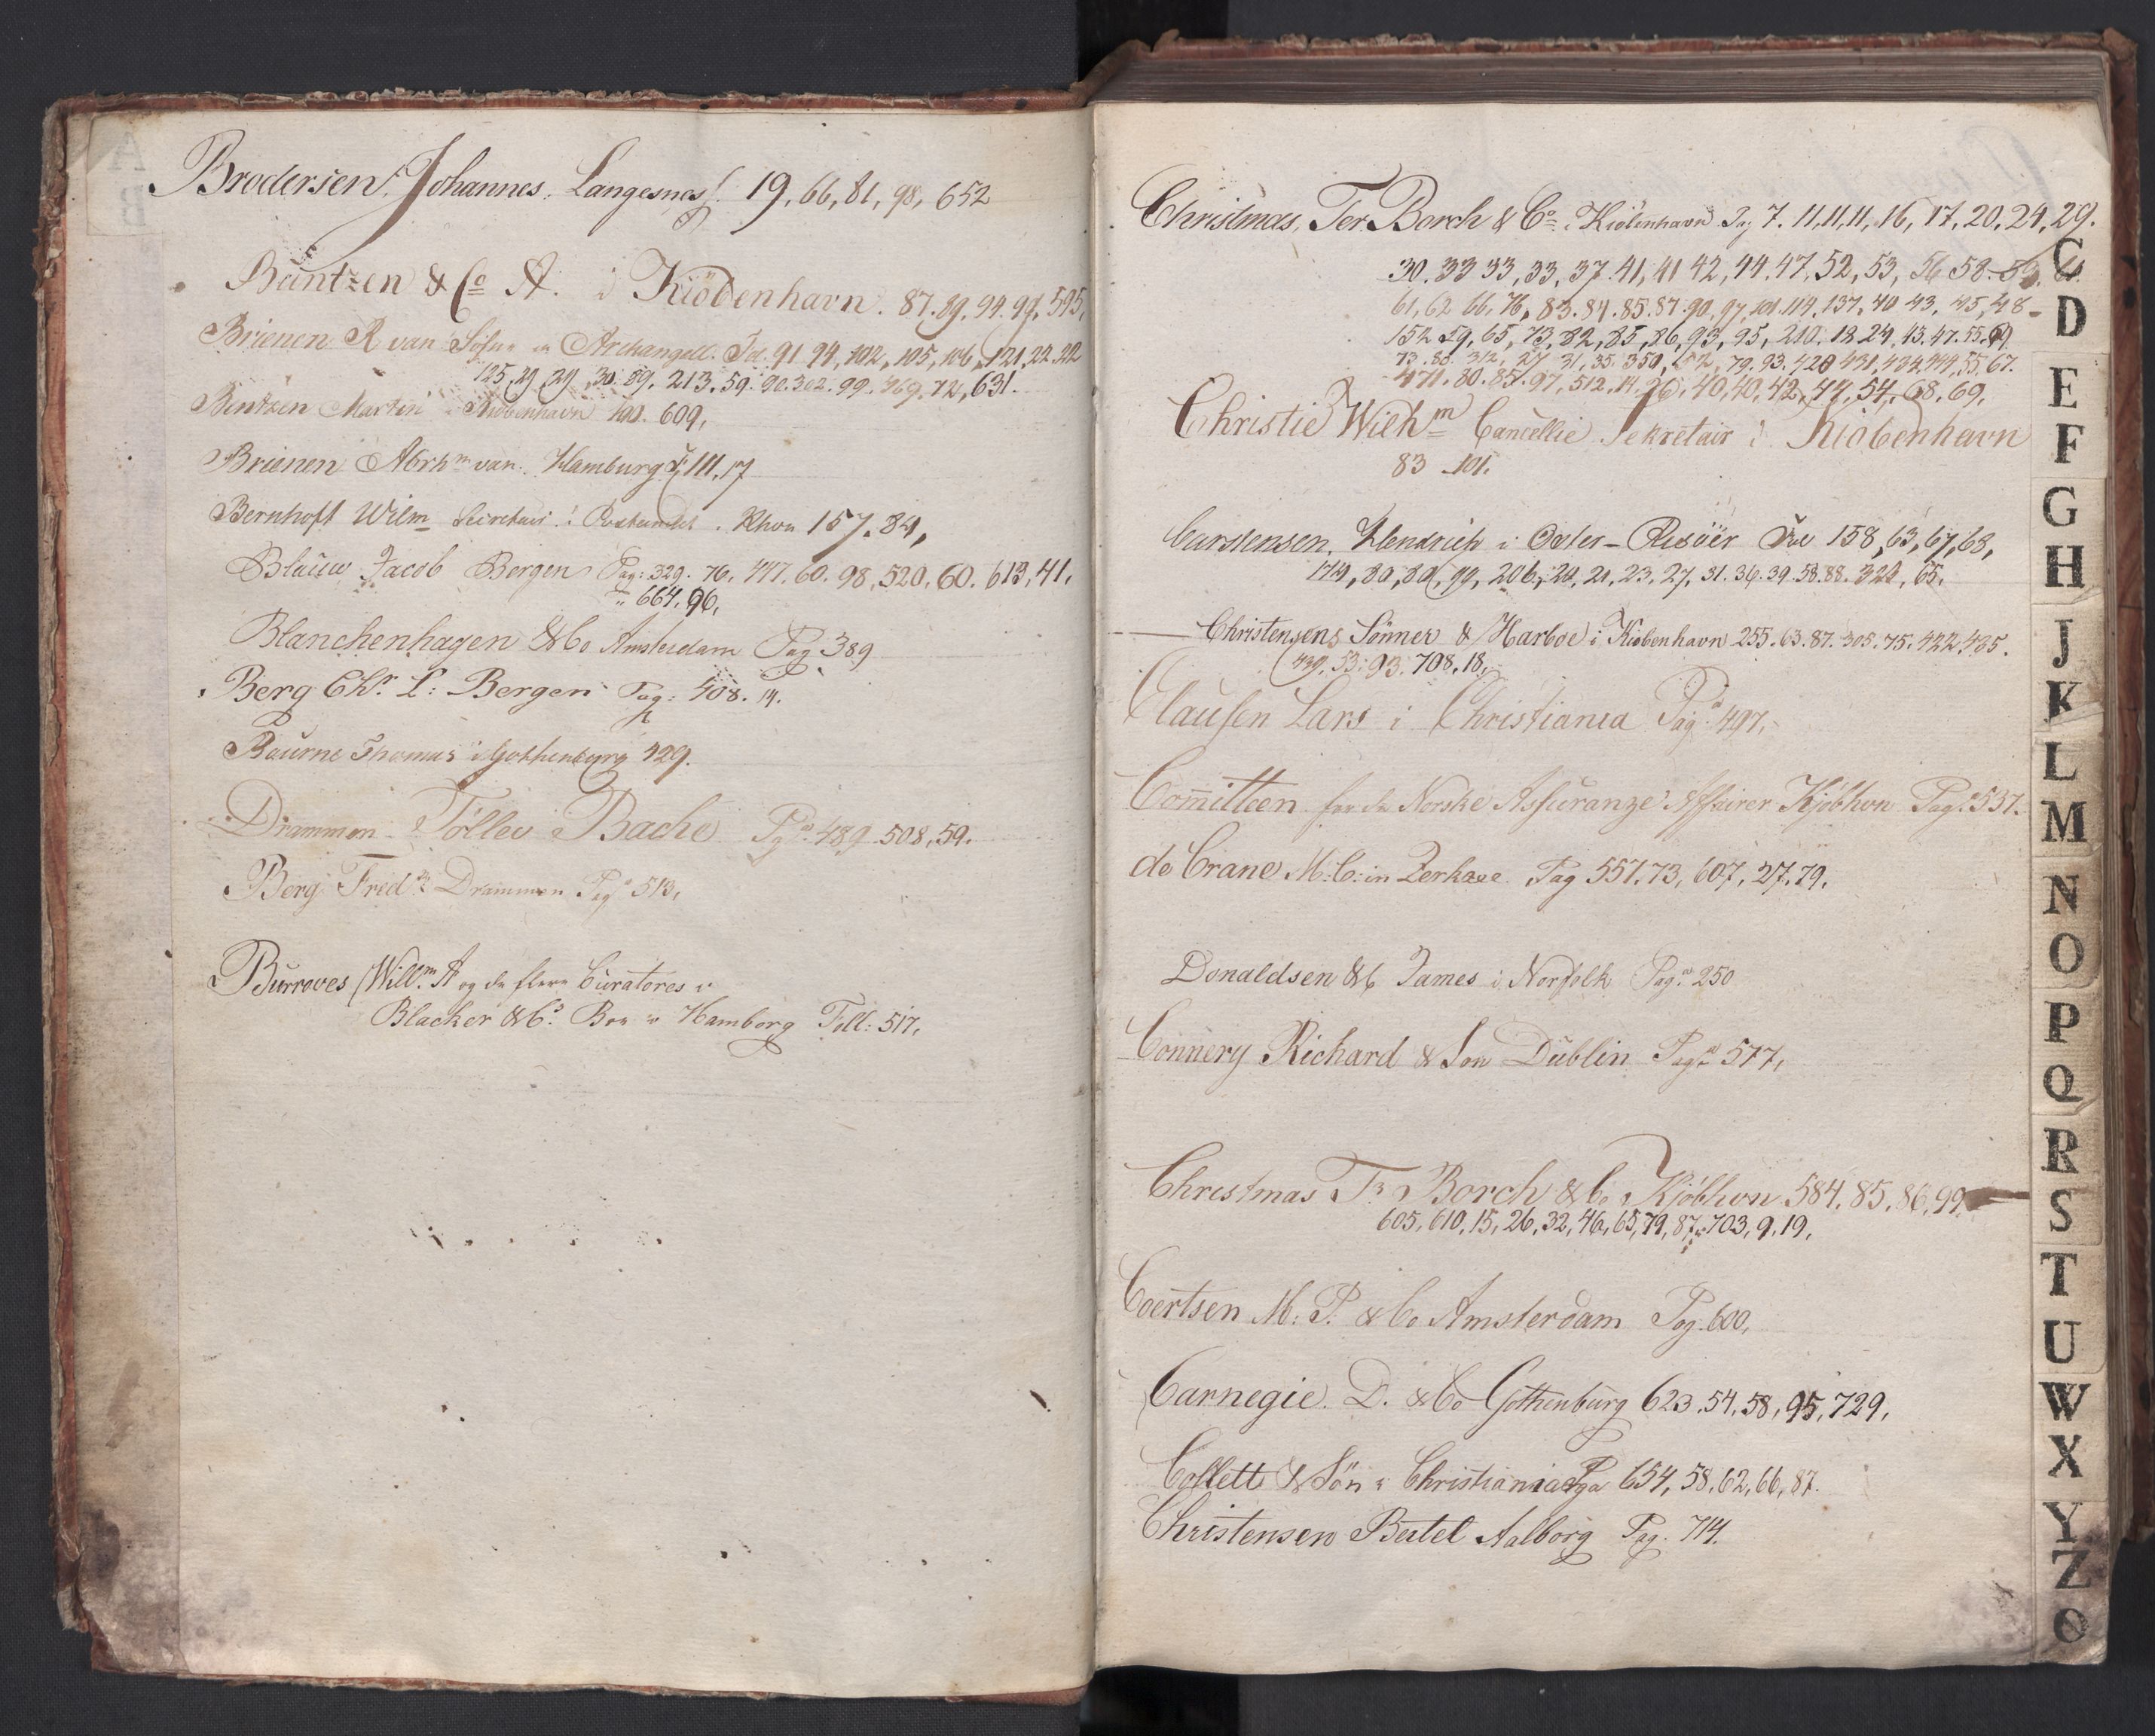 Brodersen, Johannes, Langesness. 19, 66, 81, 98, 652
Buntzen & Co A. i Kiöbenhavn. 87. 89. 94. 99. 595,
Brienen R van Söhne in Archangell. Fol. 91 94, 102, 105, 106, 121, 22 22
125, 29, 29, 30. 89. 213. 59. 90. 302. 99. 469. 72, 631.
Bentzen Martin i Kiöbenhavn 609,
Brienen Abrhm van. Hamburg 111, 17
Bernhoft Wilm Secretair i Khvn 157. 84,
Blauw Jacob Bergen Pag: 329. 76. 447. 60. 98, 520, 60. 613, 41.
" 664. 96,
Blanchenhagen & Co Amsterdam Pag 389
Berg Chr. L: Bergen Pag: 408. 14.
Bourne Thomas i Gothenburg 429.
Drammen - Töllev Bache Pag 489. 508, 59.
Berg Fredr Drammen Pag 513,
Burrowes (Willm A og de flere Curatores i
Blacker & Co. Boe i Hamborg Foll: 517,
Christmas, Ter Borch & Co i Kiöbenhavn Pag 7. 11, 11, 11, 16, 17, 20, 24, 29.
30. 33 33, 33, 37. 41, 41 42, 44. 47, 52, 53, 56 58. 59.
61, 62 66, 76, 83. 84. 85. 87. 90, 97, 101. 114, 137, 40 43, 45, 48 -
152 59, 65, 73, 82, 85, 86, 93, 95, 210, 18 24, 43. 47. 55. 69
73. 80. 312, 27 31, 35. 350, 62, 79. 93. 420 431, 434, 44, 55, 67.
471. 80. 85. 97, 512. 14, 26, 40, 40, 42, 44, 54, 68, 69,
Christie Wilhm Cancellie Sekretair i Kiöbenhavn
83 - 101.
Carstensen, Hendrich i Oster-Riisöer Fol 158, 63, 67, 68,
174, 80, 89, 99, 206, 20, 21, 23, 27, 31. 36. 39. 58. 88. 324, 65.
Christensens Sönner & Harboe i Kiöbenhavn 255. 63. 87. 305. 75. 422. 435.
439. 53. 93. 708. 18.
Clausen Lars i Christiania Pag 497.
Committeen for de Norske Assuranze Affairer Kjöbhvn Pag. 537.
de Crane M: C: in Zerkzee Pag 557. 73, 607, 27, 79.
Donaldsen & C James i Norfolk Pag. 250
Connery Richard & Son Dublin Pag 577,
Christmas Tr Borch & Co Kjöbhvn 584, 85, 86, 99,
605, 610, 15, 26, 32, 46, 65, 79, 87, 703, 9, 19,
Coertsen M: P. & Co Amsterdam Pag. 600,
Carnegie. D. & Co Gothenburg 623. 54, 58, 95, 729,
Collett & Sön i Christiania Pga 654, 58, 62, 66, 87.
Christensen Bertel Aalborg Pag. 714.
C
D
E
F
G
H
J
K
L
M
N
O
P
Q
R
S
T
U
W
X
Y
Z
Ø